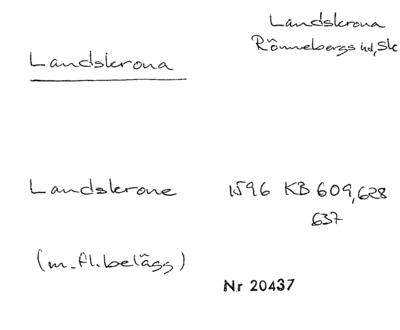 Landskrona
Rönnebergs hd, Sk
Landskrona
Landskrone 1596 KB 609, 628
637
(m.fl. belägg)
Nr 20437